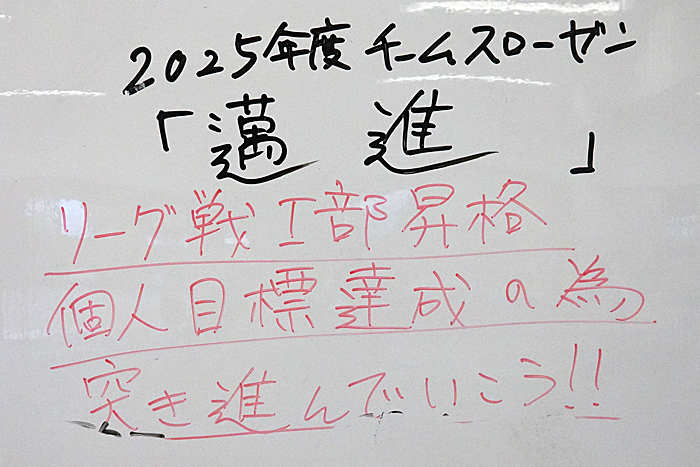 2025年度 チームスローゼン
「邁進」
リーグ戦Ⅰ部昇格
個人目標達成の為
突き進んでいこう!!